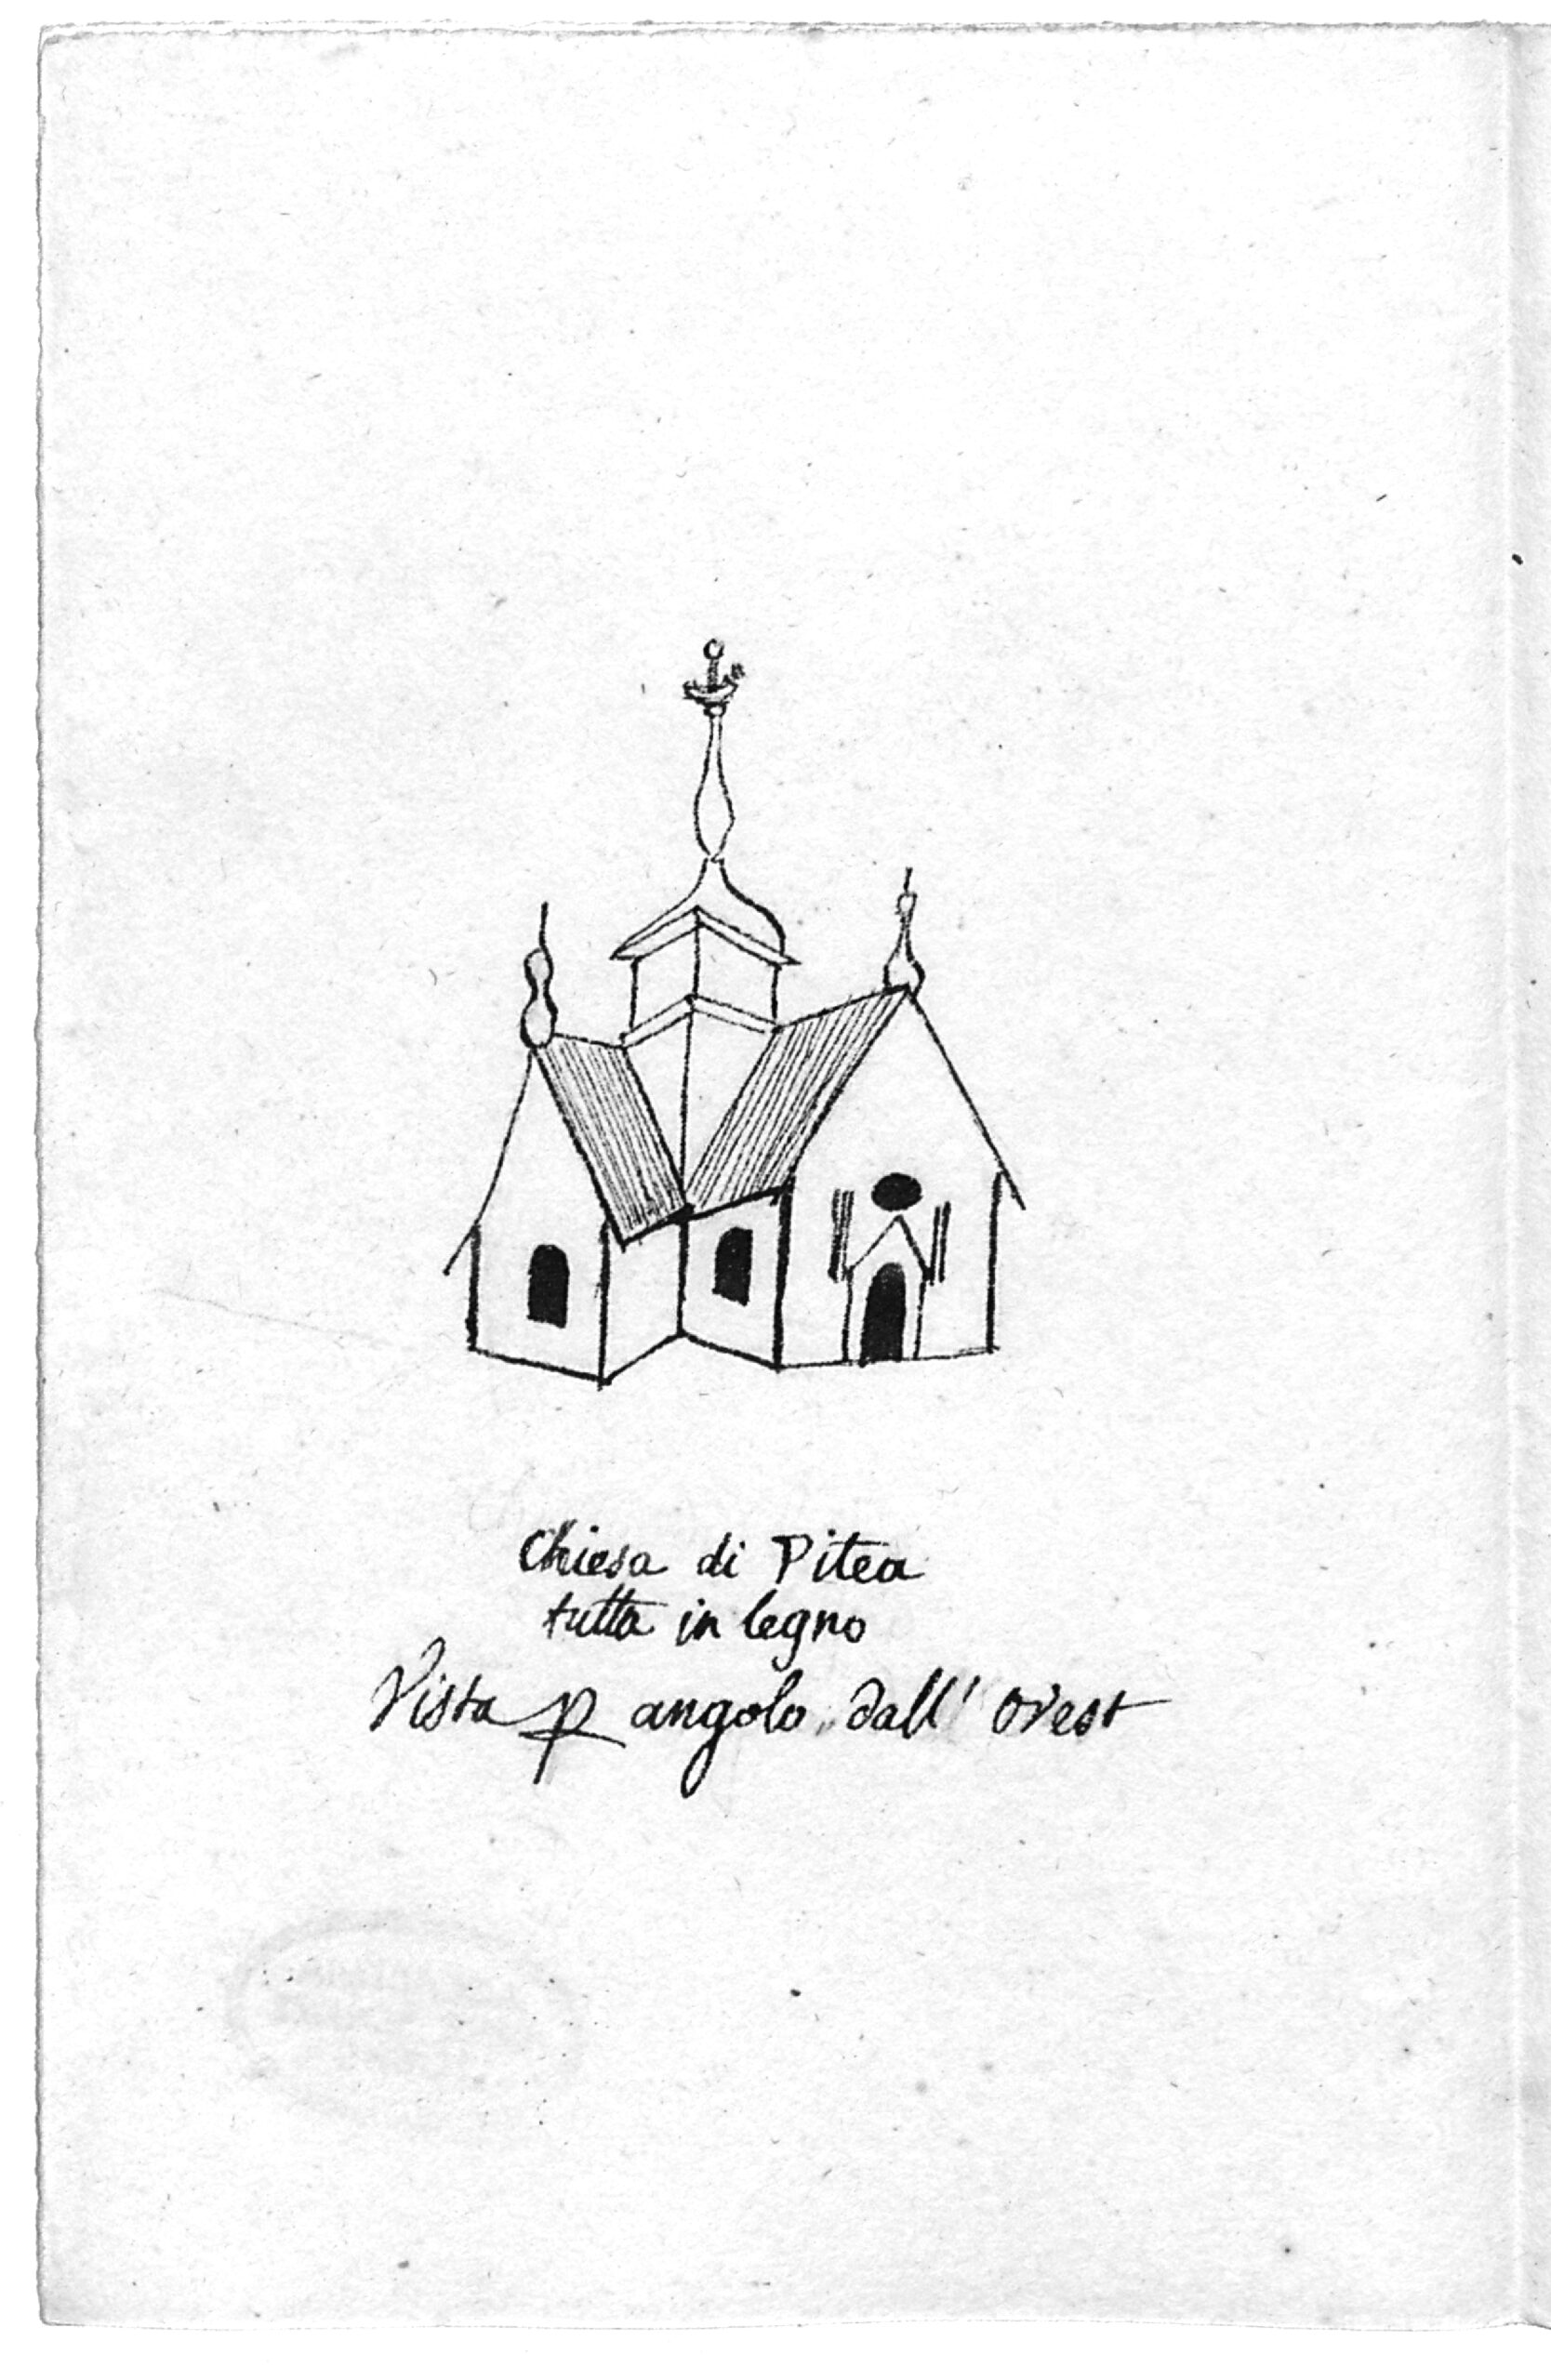 Chiesa di Pitea
tutta in legno
Vista p angolo dall' Ovest